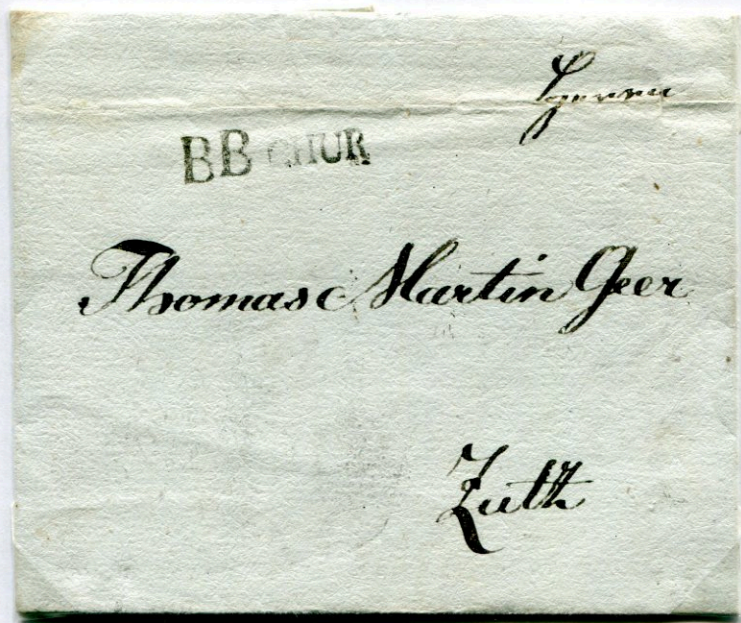 BB CHUR
Thomas Martin Geer
Zuth